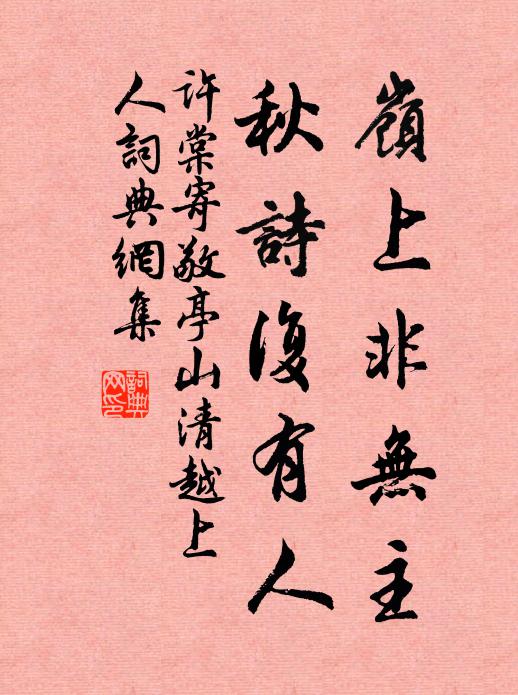 嶺上非無主
秋詩復有人
許棠寄敬亭山清越上
人詞典網集
詞典
网印